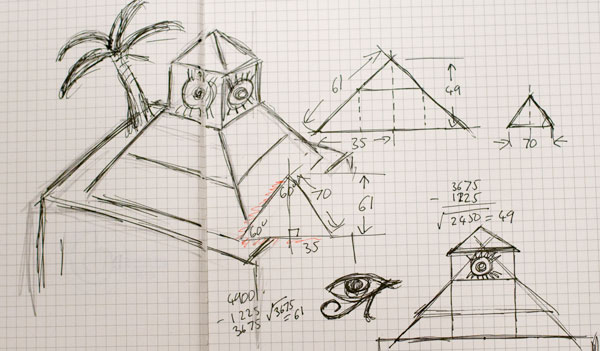 61
49
35
70
60°
70
61
60°
35
3675
- 1225
√2450 = 49
4900
- 1225
3675
√3675
= 61